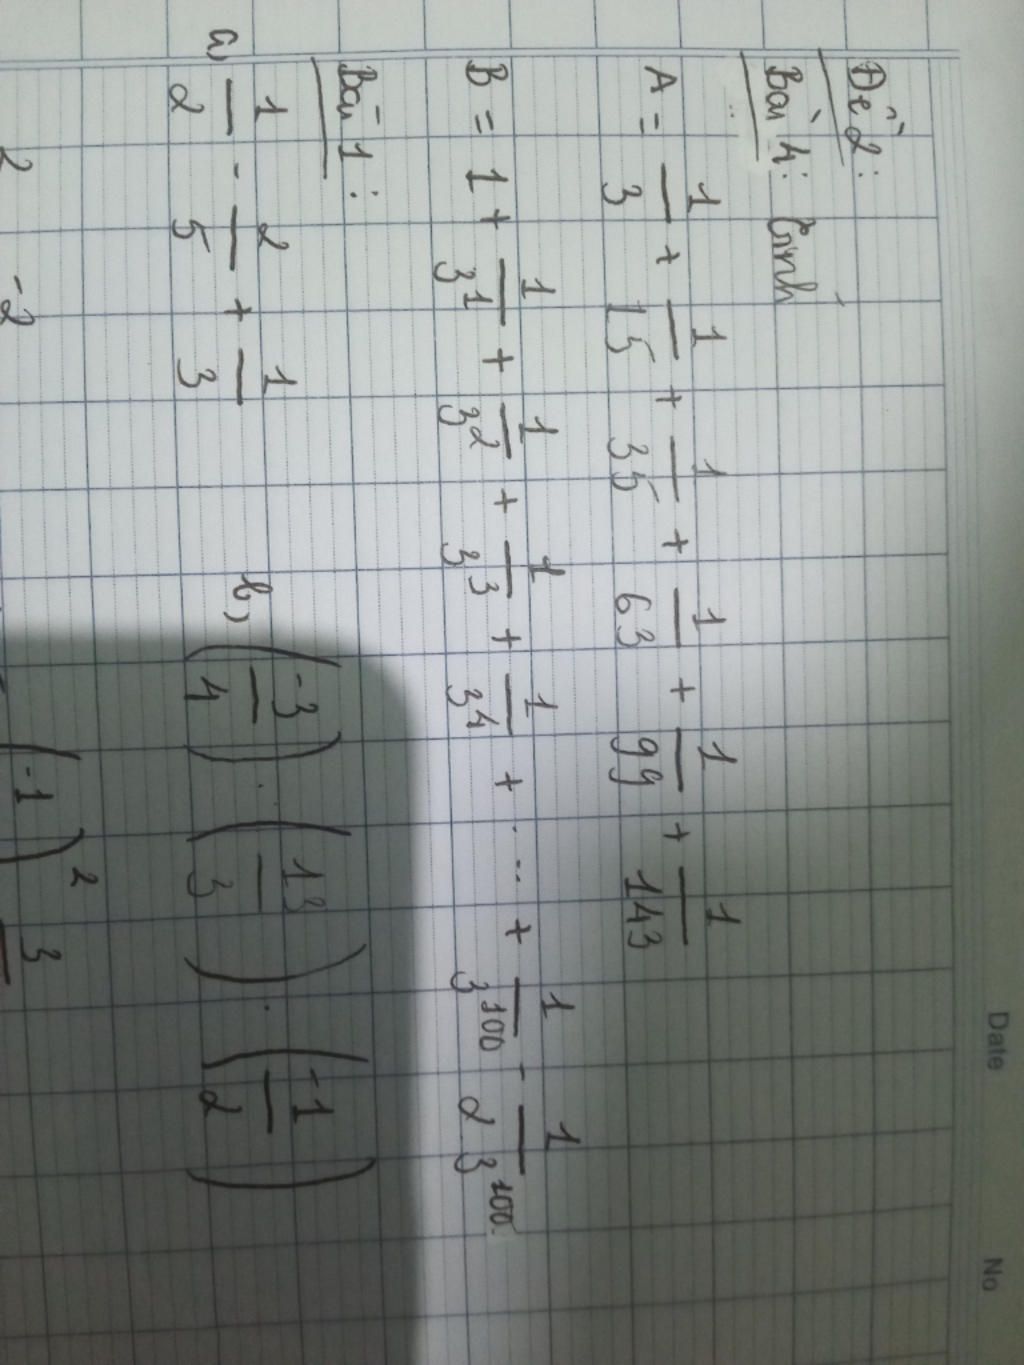 Date No
Đề 2:
Bài 4: Tính
A = 1/3 + 1/15 + 1/35 + 1/63 + 1/99 + 1/143
B = 1 + 1/3^1 + 1/3^2 + 1/3^3 + 1/3^4 + ... + 1/3^100 - 1/2 3^100
Bài 1:
a) 1/2 - 2/5 + 1/3 b) (-3/4) . (13/3) . (-1/2)
2 -2 (-1)^2 3